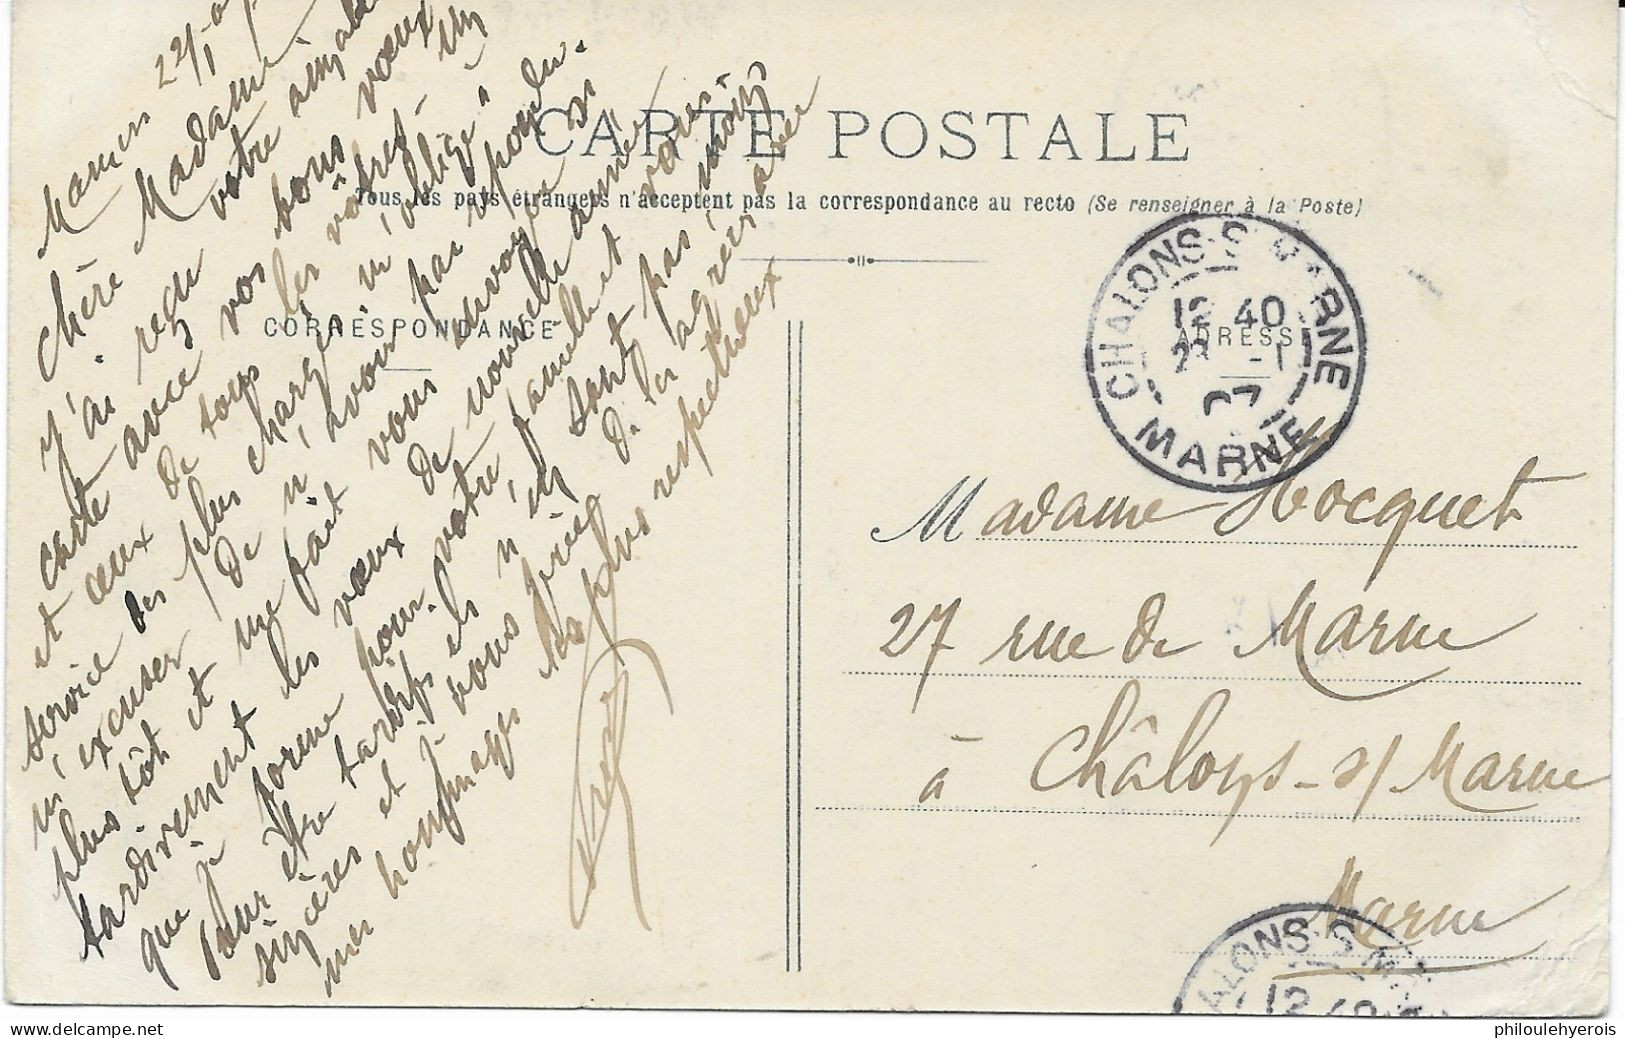 CARTE POSTALE
Tous les pays étrangers n'acceptent pas la correspondance au recto (Se renseigner à la Poste)
CORRESPONDANCE
Mamers 22/1
Chère Madame
J'ai reçu votre aimable
carte avec vos bons vœux
et ceux de tous les vôtres. Un
service des plus chargés m'oblige à
m'excuser de n'avoir pas répondu
plus tôt et me fait vous envoyer si
tardivement les vœux de nouvelle année
que je forme pour votre famille et vous.
Pour être tardifs ils n'en sont pas moins
sincères et je vous prie de les agréer avec
mes hommages les plus respectueux
ADRESSE
CHALONS-S-MARNE
12 40
23 -1
07
MARNE
Madame Hocquet
27 rue de Marne
à Châlons-s/Marne
Marne
ALONS-S-MA
12 40
philoulehyerois
© www.delcampe.net